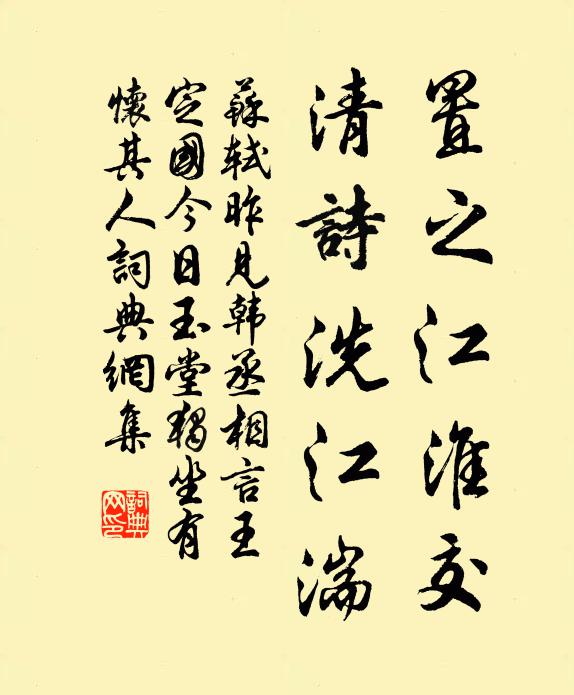 置之江淮交
清詩洗江湍
蘇軾昨見韩丞相言王
定國今日玉堂獨坐有
懷其人詞典網集
詞典網印